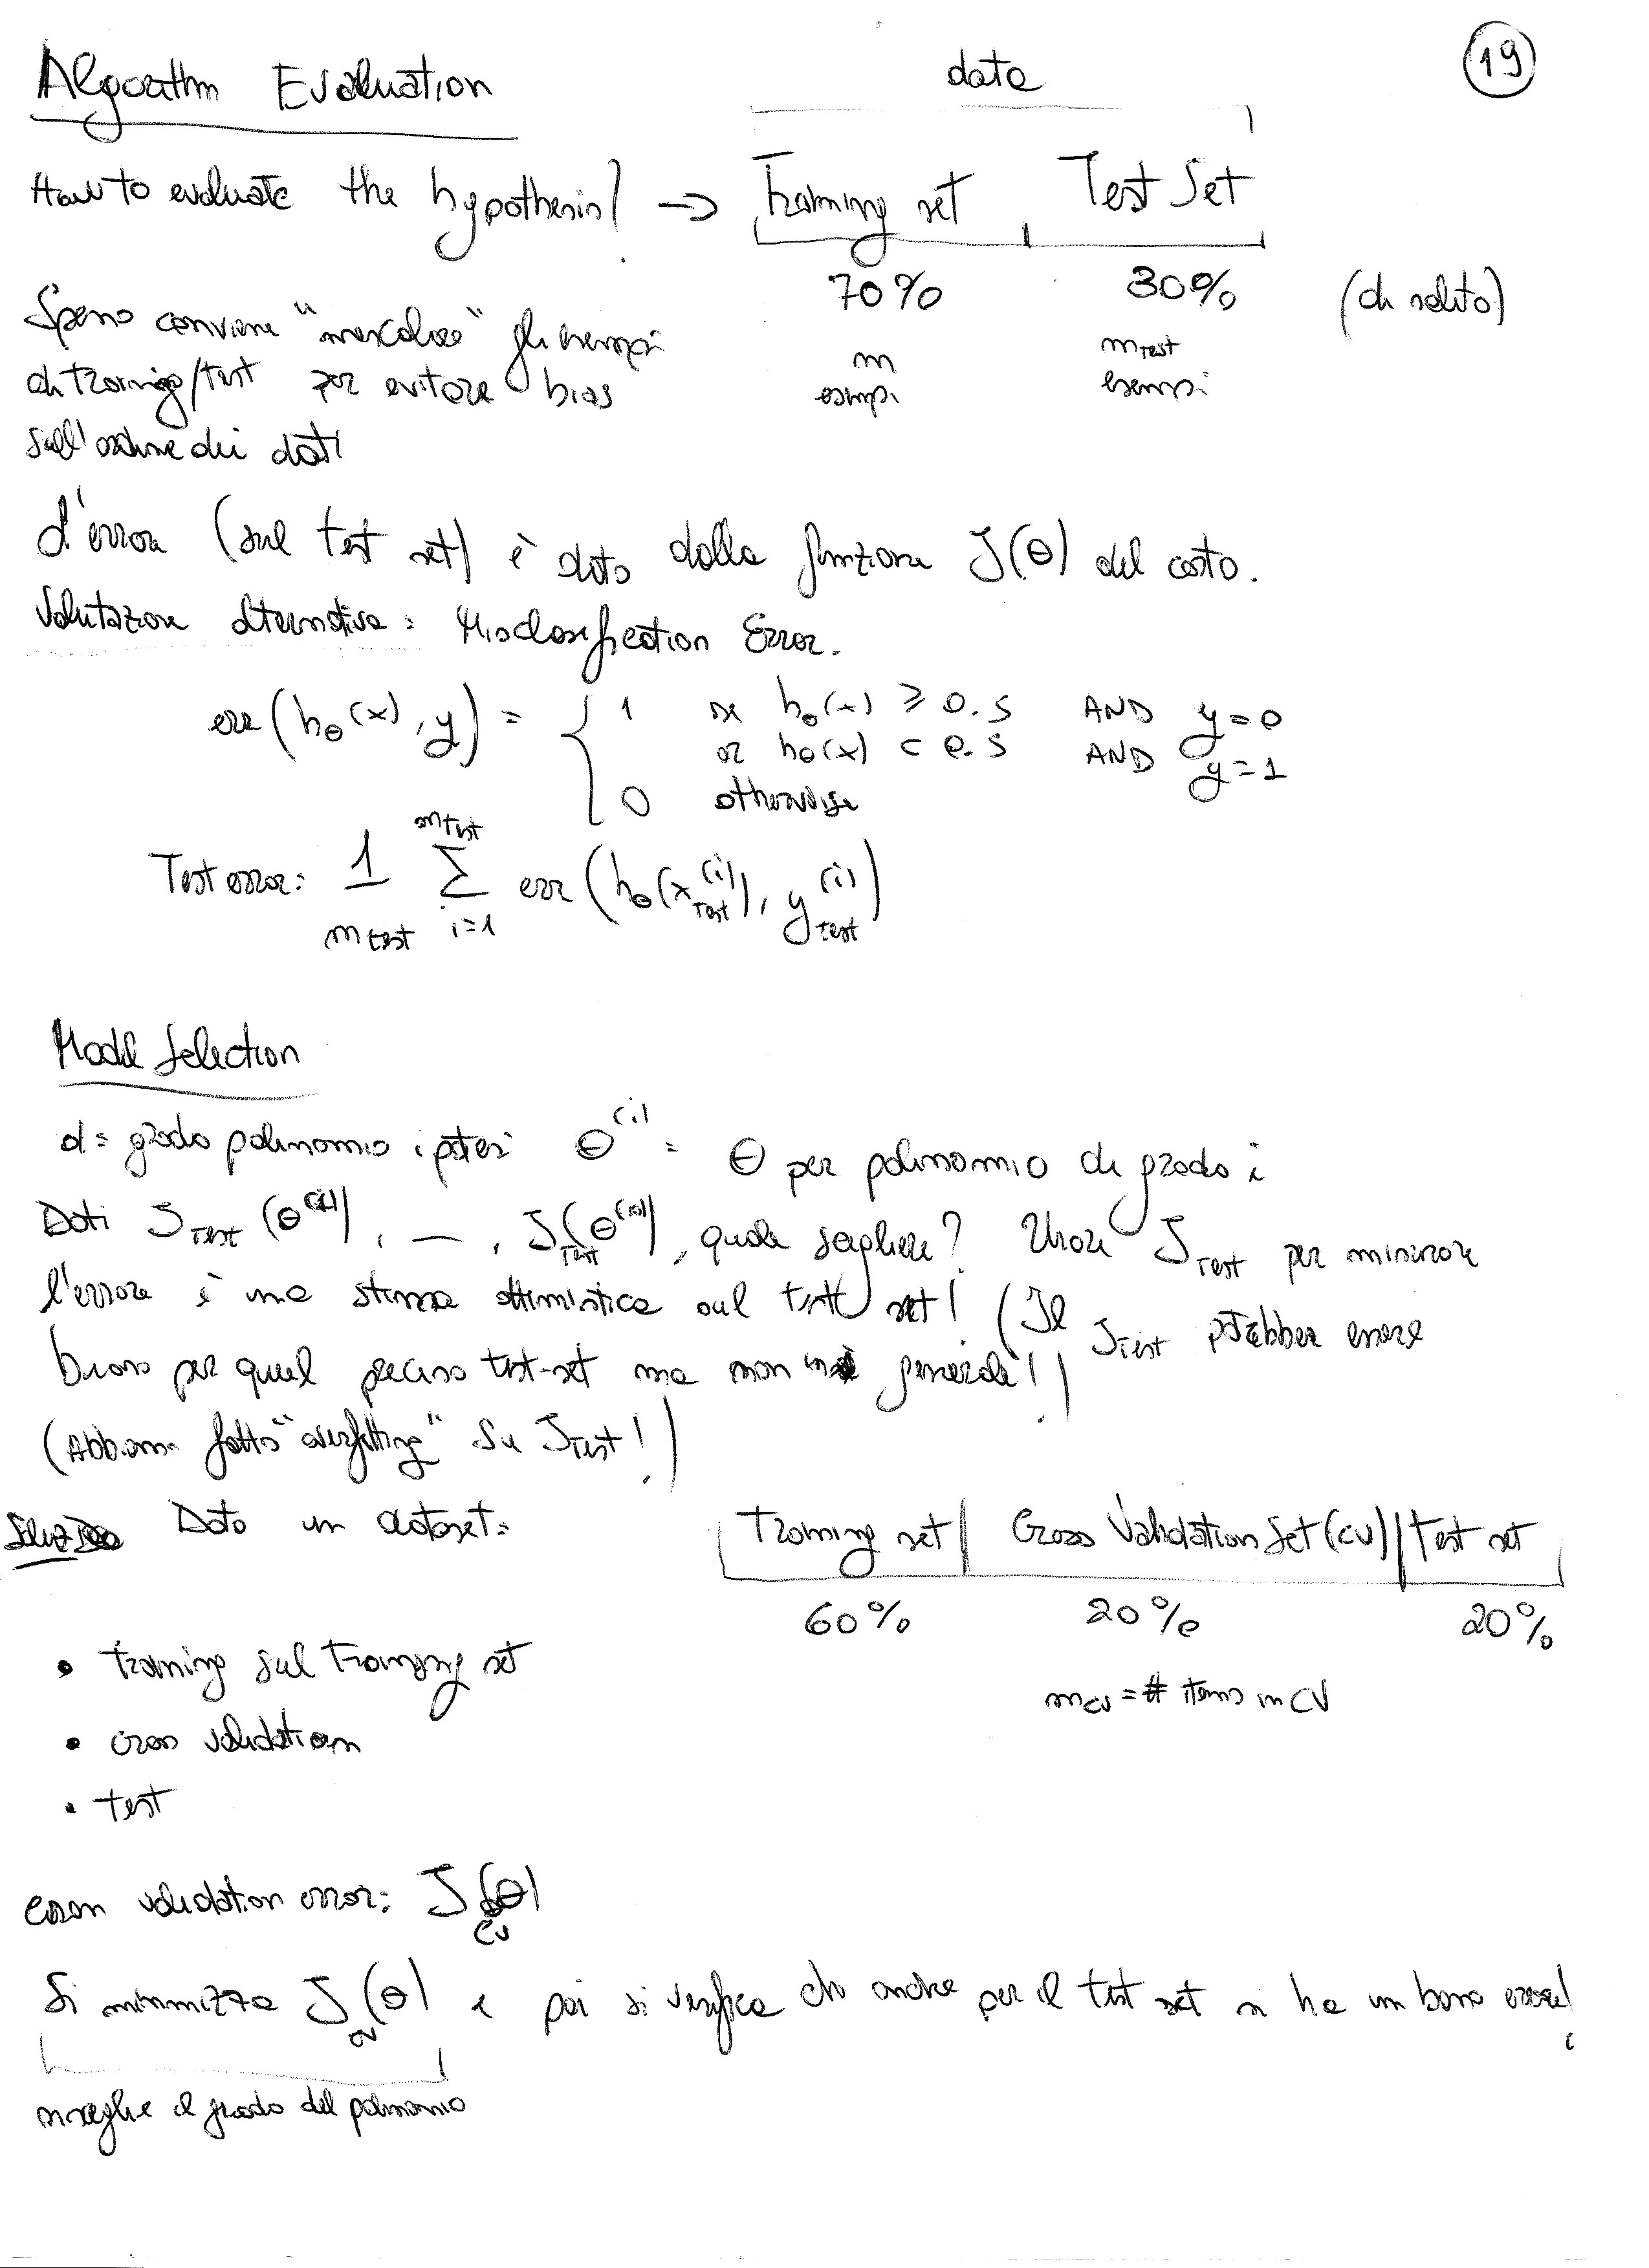 19
Algorithm Evaluation
data
How to evaluate the hypothesis? → Training set , Test Set
70% 30% (di solito)
Spesso conviene "mescolare" gli esempi
m esempi
m_test esempi
di training/test per evitare bias
sull'ordine dei dati
L'errore (sul test set) è dato dalla funzione J(θ) del costo.
Valutazione alternativa: Misclassification Error.
err(h_θ(x), y) = { 1 se h_θ(x) ≥ 0.5 AND y=0
or h_θ(x) < 0.5 AND y=1
0 otherwise
Test error: 1/m_test Σ_{i=1}^{m_test} err(h_θ(x_test^(i)), y_test^(i))
Model Selection
d = grado polinomio ipotesi θ^(i) = θ per polinomio di grado i
Dati J_Test(θ^(1)), —, J_Test(θ^(10)), quale scegliere? Usare J_Test per minimizzare
l'errore è una stima ottimistica sul test set! (Il J_Test potrebbe essere
buono per quel preciso test-set ma non in generale!)
(Abbiamo fatto "overfitting" su J_Test!)
Soluzione Dato un dataset:
Training set | Cross Validation Set (CV) | Test set
60% 20% 20%
m_cv = # items in CV
• training sul training set
• cross validation
• test
cross validation error: J_cv(θ)
Si minimizza J_cv(θ) e poi si verifica che anche per il test set si ha un buon errore!
si sceglie il grado del polinomio